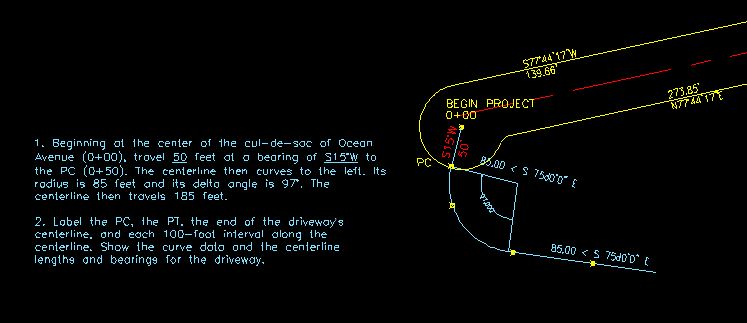 S77°44'17"W
139.66'
BEGIN PROJECT
0+00
273.85'
N77°44'17"E
S15°W
50
PC
85.00 < S 75d0'0" E
97.000
85.00 < S 75d0'0" E
1. Beginning at the center of the cul-de-sac of Ocean
Avenue (0+00), travel 50 feet at a bearing of S15°W to
the PC (0+50). The centerline then curves to the left. Its
radius is 85 feet and its delta angle is 97°. The
centerline then travels 185 feet.
2. Label the PC, the PT, the end of the driveway's
centerline, and each 100-foot interval along the
centerline. Show the curve data and the centerline
lengths and bearings for the driveway.